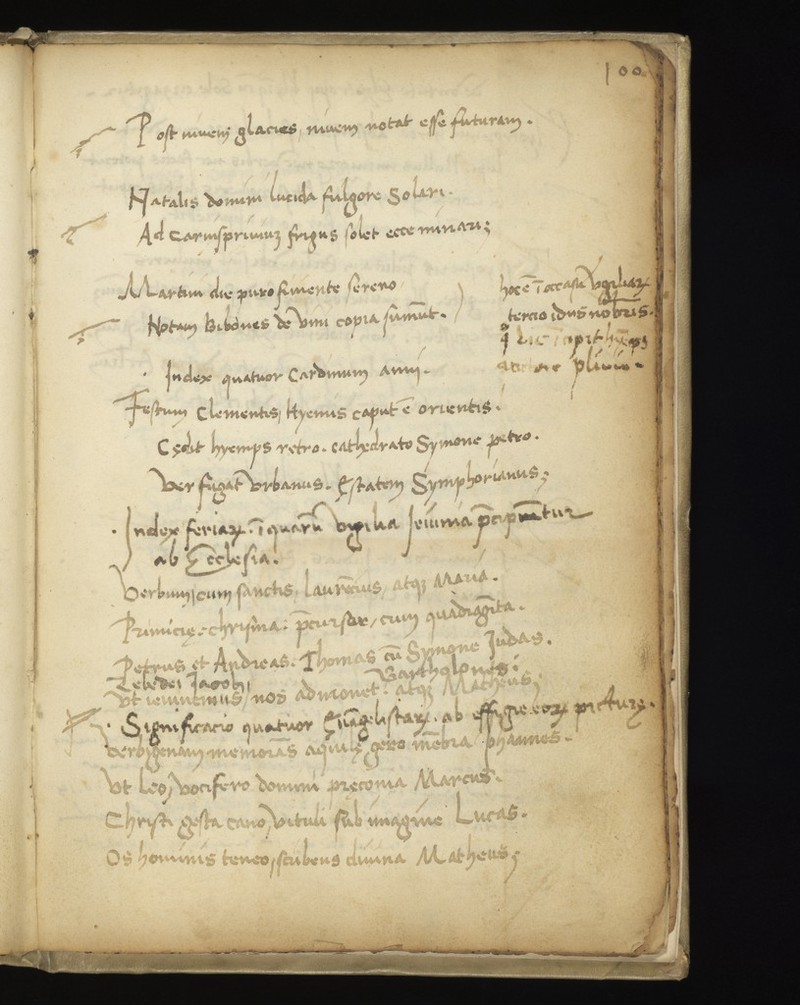 100
Post nivem glacies, nivem notat esse futuram.
Natalis domini lucida fulgore Solari.
Ad Carnispriuiuꝫ frigus solet ecce minari;
Martini die puro finiente sereno
Notam Bibones de vini copia sumūt.
hoc ē ī occasu vgiliaꝝ
tercio idus nobris.
plinius.
Index quatuor Cardinum anni.
Festum Clementis, Hyemis caput ē orientis.
Cędit hyemps retro. cathedrato Symone petro.
Ver fugat Vrbanus. Estatem Symphorianus;
Index feriaꝝ. ī quarū vigilia Ieiunia p̄cipiūtur
ab Ecclesia.
Verbum, cum sanctis, laurēcius, atqꝫ Maria.
Primicię. chrisma: p̄cursor, cum quadragīta.
Petrus et Andreas. Thomas cū Symone Judas.
Zebedei Jacob, Bartholoneꝰ:
Vt ieiunemus, nos admonet. atqꝫ Matheus;
Significacio quatuor Euāgelistaꝝ. ab effigie eoꝝ picturę.
Verbigenam memorās aquilę gero mēbra Johannes.
Vt Leo, vocifero domini pręconia Marcus.
Christi gesta cano, vituli sub imagine Lucas.
Os hominis teneo, scribens divina Matheus;